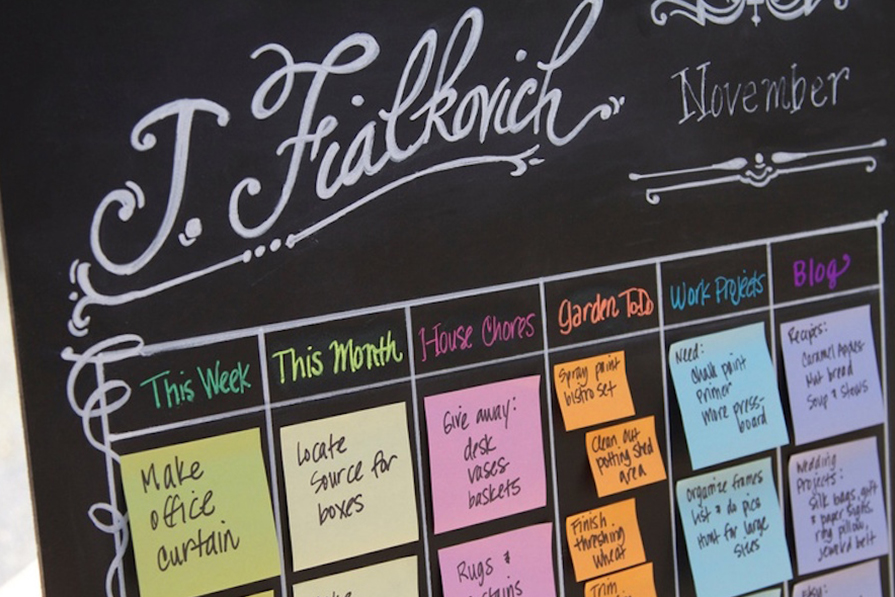 J. Fialkovich
November
This Week
This Month
House Chores
Garden ToDo
Work Projects
Blog
Make
office
curtain
Locate
source for
boxes
Give away:
desk
vases
baskets
Rugs &
Spray paint
bistro set
Clean out
potting shed
area
Finish
threshing
wheat
Trim
Need:
Chalk paint
primer
More press-
board
Organize frames
list & do pics
Hunt for large
sizes
Recipes:
Caramel Apples
Nut bread
Soup & stews
Wedding
Projects:
silk bags, gift
& paper
ring pillow,
jewel'd belt